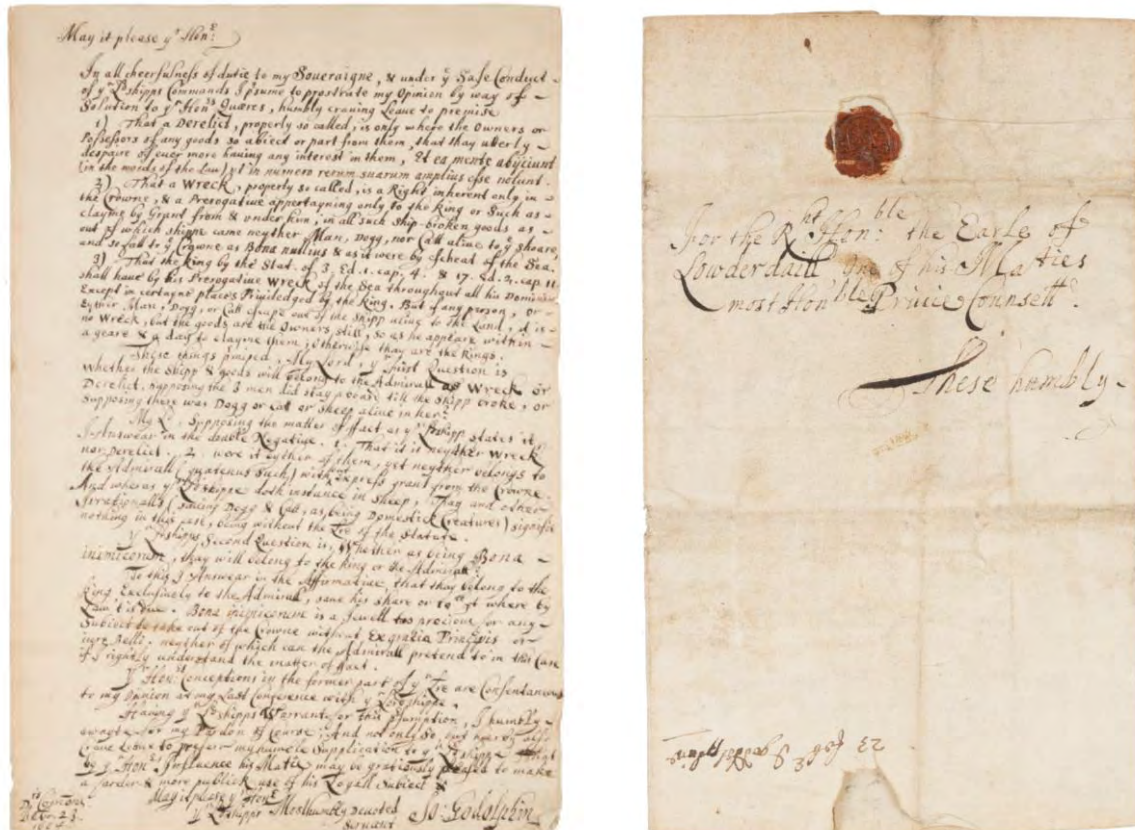 May it please yr Honr:
In all cheerfulness of dutie to my Soueraigne, & under ye Safe Conduct
of yr Lpshipps Commands I psume to prostrate my Opinion by way of
Solution to yr Honrs Quæres, humbly craving Leave to premise
1) That a Derelict, properly so called, is only where the Owners or
Possessors of any goods so abiect or part from them, that thay utterly
despaire of euer more hauing any interest in them, Et ea mente abijciunt
(in the words of the Law) ut in numero rerum suarum amplius esse nolunt.
2) That a Wreck, properly so called, is a Right inherent only in
the Crowne, & a Prerogative appertayning only to the King or Such as
clayme by Grant from & under him; in all such Ship-broken goods as
out of which shippe came neyther Man, Dogg, nor Catt alive to ye Shoare,
and so fall to ye Crowne as Bona nullius & as it were by Escheat of the Sea.
3) That the King by the Stat. of 3. Ed. 1. cap. 4. & 17. Ed. 2. cap. 11
shall haue by his Prerogative Wreck of the Sea throughout all his Dominions
Except in certayne places Priviledged by the King. But if any person, or
Eyther Man, Dogg, or Catt escape out of the Shipp alive to the Land, it is
no Wreck, but the goods are the Owners still, so as he appeare within
a yeare & a day to clayme them; Otherwise thay are the Kings.
These things pmised, My Lord, yr first Question is
Whether the Shipp & goods will belong to the Admirall as Wreck or
Derelict, supposing the 3 men did stay aboard till the Shipp broke, or
Supposing there was Dogg or Catt or Sheep alive in her?
My Ld, Supposing the matter of ffact as yr Lpshipp states it
I Answear in the double Negative. 1. That it is neyther Wreck
nor Derelict. 2. were it eyther of them, yet neyther belongs to
the Admirall (quatenus Such) without express grant from the Crowne.
And wheras yr Lpshippe doth instance in Sheep, Thay and other
Irrationalls (saving Dogg & Catt, as being Domestick Creatures) signifie
nothing in this case, being without the Lre of the Statute.
Yr Lpshipps Second Question is, Whether as being Bona
inimicorum, thay will belong to the King or the Admirall?
To this I Answear in the Affirmative that thay belong to the
King Exclusively to the Admirall, save his share or 10th pt where by
Law 't is due. Bona inimicorum is a Jewell too precious for any
Subiect to take out of the Crowne without Ex gratia Principis or
iure Belli. neyther of which can the Admirall pretend to in this Case
if I rightly understand the matter of ffact.
Yr Honrs Conceptions in the former part of yr Lre are Consentaneous
to my Opinion at my Last Conference with yr Lordshippe.
Having yr Lpshipps Warrant for this psumption, I humbly
for my Pardon of Course; And not only so, but
Crave Leave to prefer my humble Supplication to yr Lpshippe that
by yr Honrs Influence his Matie may be gratiously pleased to make
a farder & more publick use of his Loyall Subiect &
May it please yr Honr
Yr Lpshipps Most humbly Devoted
Servant
Jo: Godolphin
Drs Comons
23
For the Rht Honble: the Earle of
Lowderdaill one of his Maties
most Honble Privie Counsell.
These humbly
23